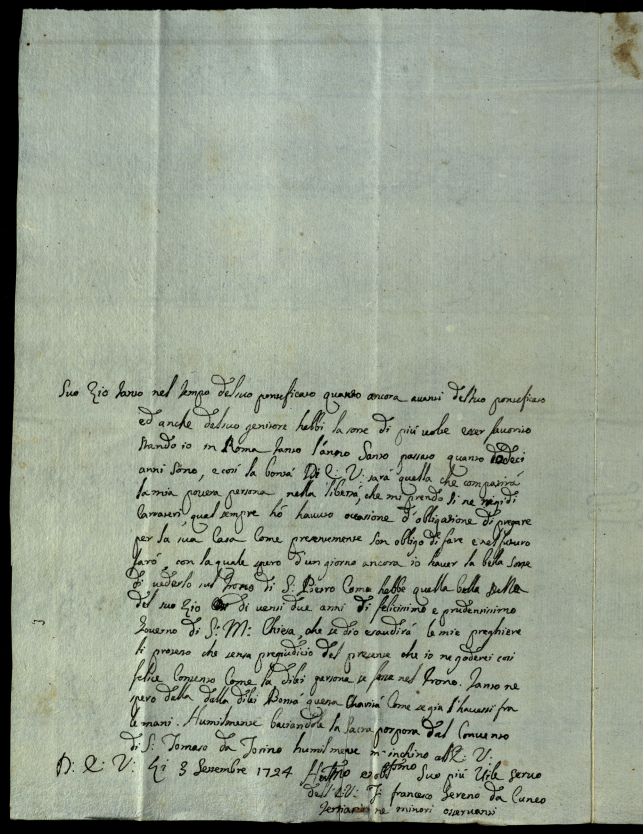 Suo Zio tanto nel tempo del suo pontificato quanto ancora avanti del suo pontificato
ed anche del suo genitore hebbi la sorte di più volte esser favorito
stando io in Roma tanto l'anno Santo passato quanto dodeci
anni sono, e così la bontà Di E: V: sarà quella che compatirà
la mia povera persona nella libertà, che mi prendo si ne
Carrateri, qual sempre hò hauuto occasione d'obligatione di pregare
per la sua Casa Come presentemente son obligo di fare e nel futuro
farò, con la quale spero d'un giorno ancora io haver la bella sorte
di vederlo sul Trono di S. Pietro Come hebbe quella bella
del suo Zio di venti due anni di felicissimo e prudentissimo
Governo di S: M: Chiesa, che se dio esaudirà le mie preghiere
li protesto che senza pregiudicio del presente che io ne goderei così
felice Contento Come la di lei persona se fosse nel Trono. Tanto ne
spero dalla dalla di lei Bontà questa Charità Come se già l'havessi fra
le mani. Humilmente baciandole la Sacra porpora dal Convento
di S. Tomaso da Torino humilmente m'inchino all'E: V:
D: E: V: Li 3 Settembre 1724 Suo più Vile servo
dell'E.V: F: francesco Sereno da Cuneo
ne minori osservanti